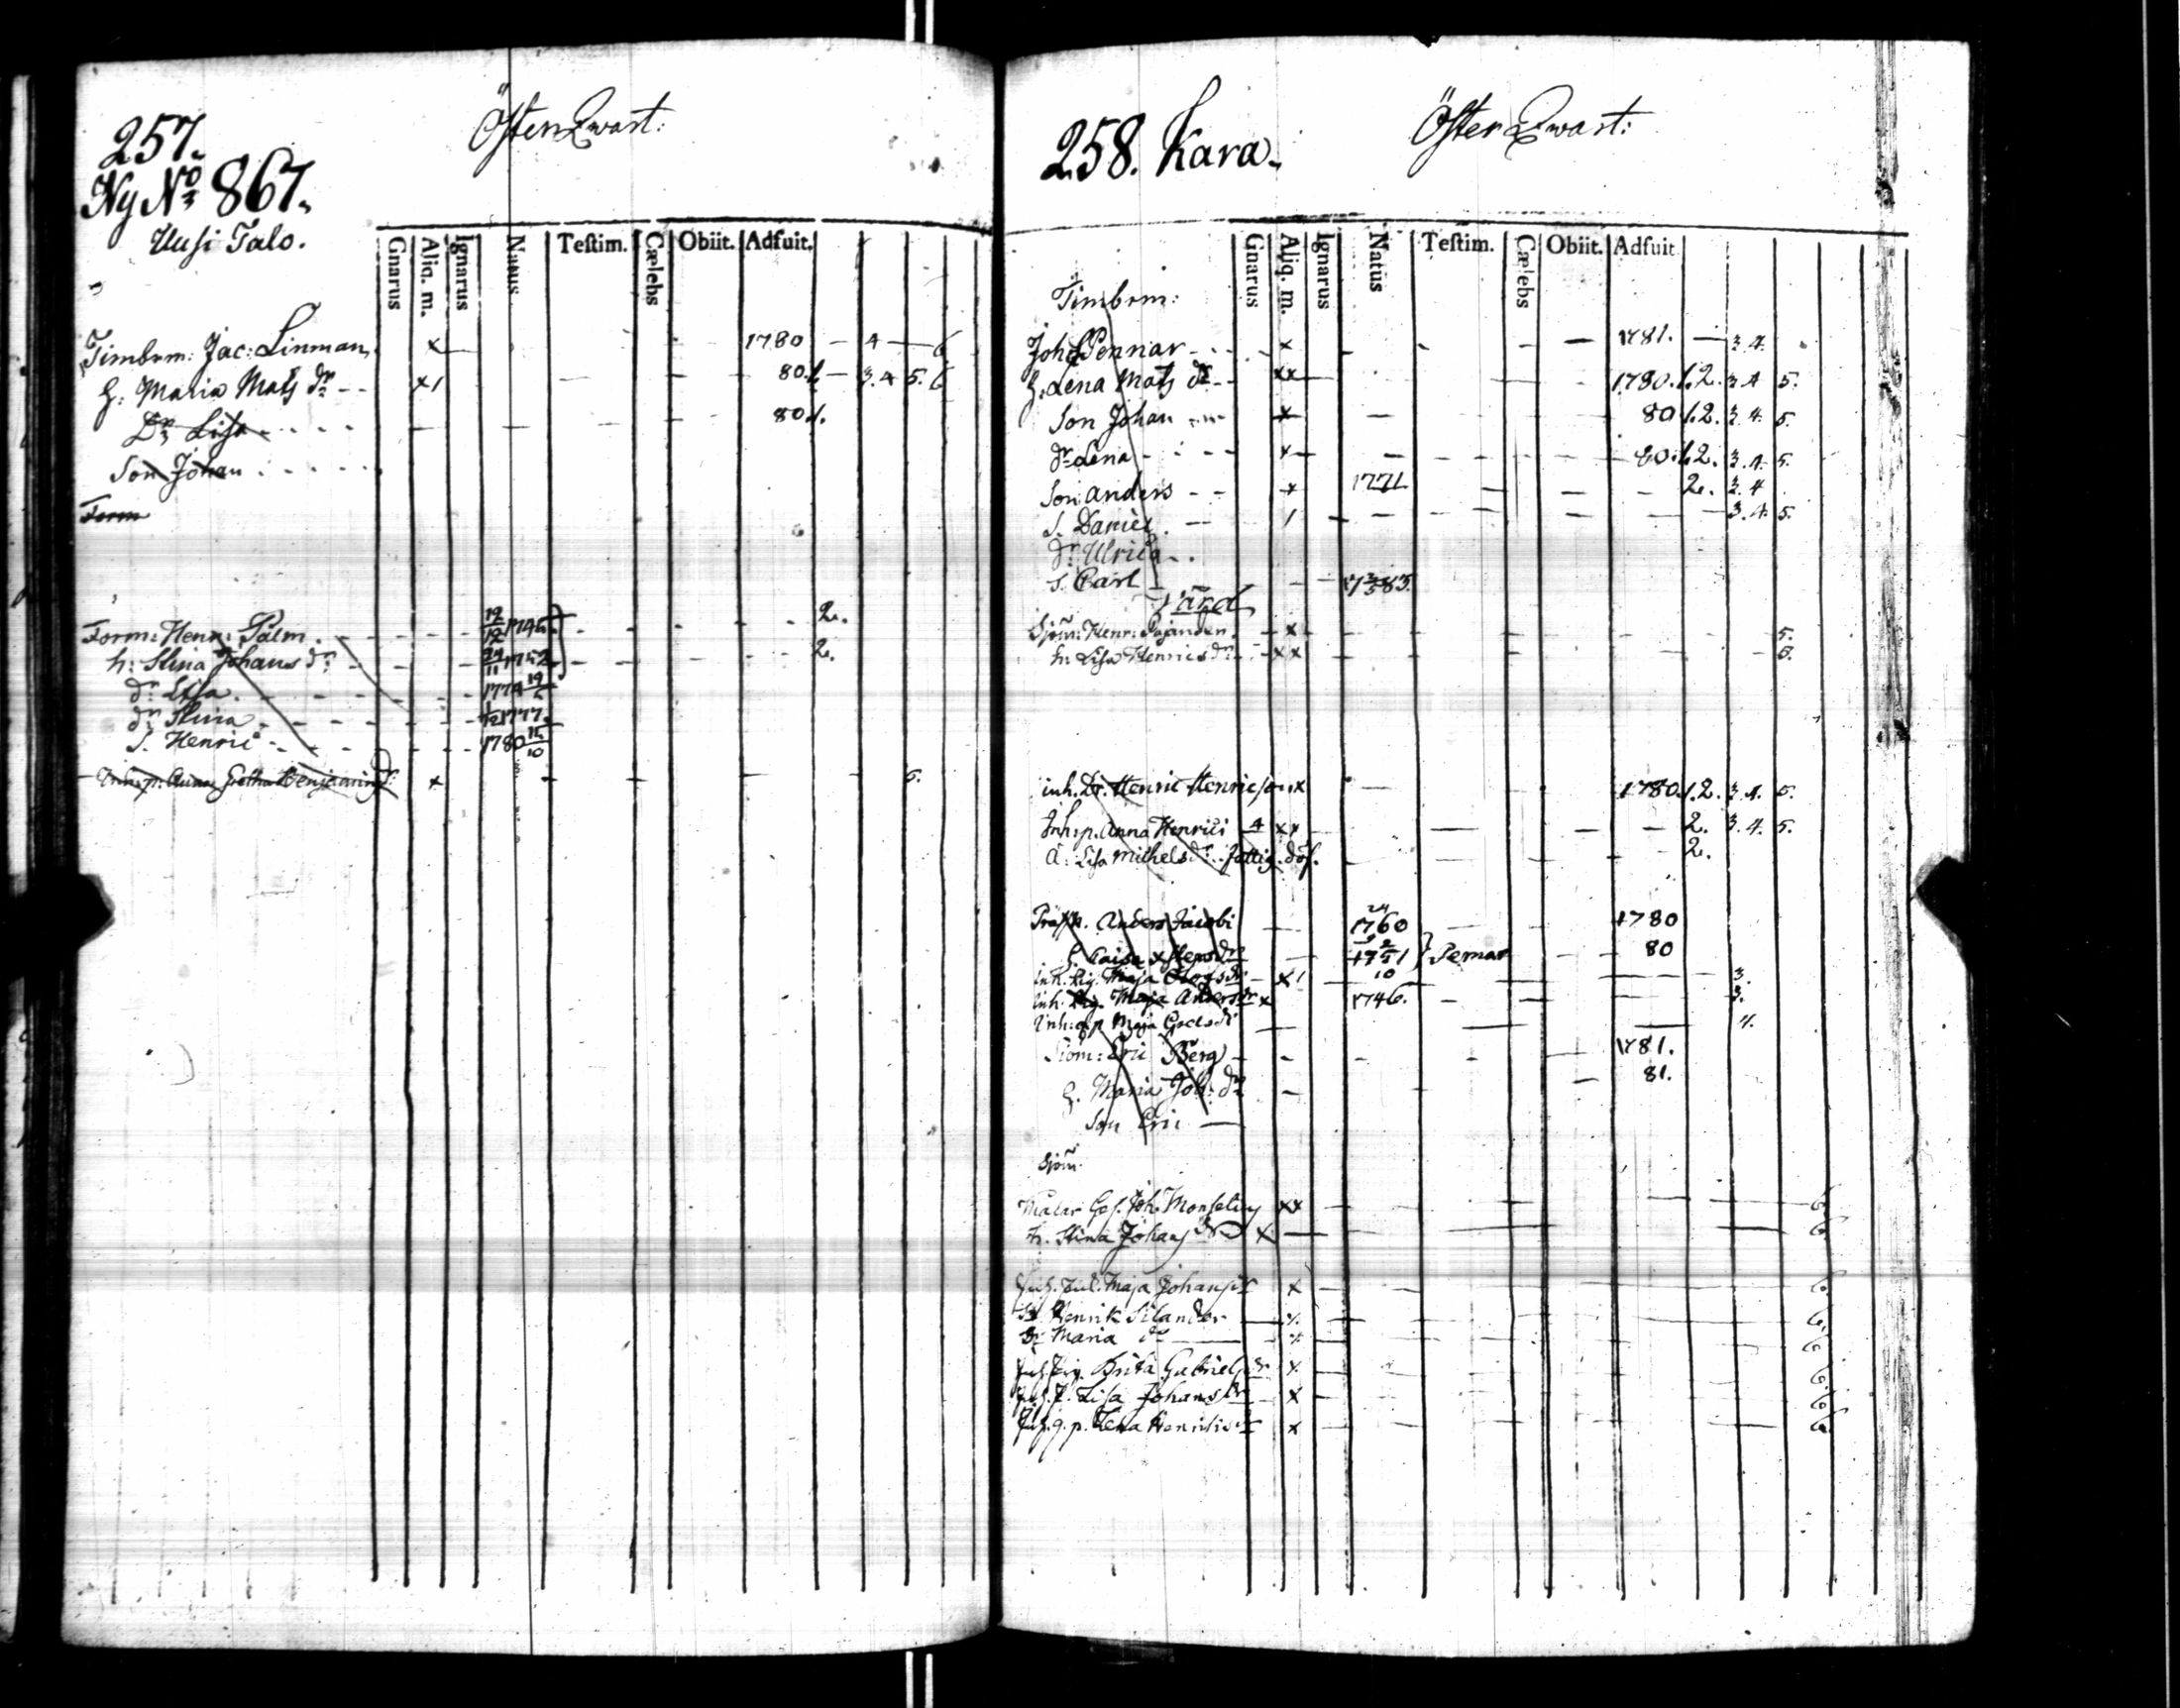 Öster Qwart:
257.
Ny No 867.
Uusi Talo.
Gnarus Aliq. m. Ignarus Natus Testim. Cælebs Obiit. Adfuit.
Timberm: Jac: Linman x 1780 — 4 — 6
H: Maria Mats dr x1 80.1. — 3.4 5. 6
Dr Lisa 80.1.
Son Johan
Form
Form: Henr: Palm 19/12 1745 2.
h: Stina Johans dr 24/11 1752 2.
dr Lisa 1774 19
dr Stina 1/12 1777
S. Henric 1780 15/10
Inh: p: Anna Greta Benjamins dr x 5.
Öster Qwart:
258. Kara.
Gnarus Aliq. m. Ignarus Natus Testim. Cælebs Obiit. Adfuit
Timberm:
Joh: Pennar x 1781. — 3.4.
H: Lena Mats dr xx 1780.1.2. 3.4 5.
Son Johan x 80.1.2. 3.4. 5.
dr Lena x 80.1.2. 3.4. 5.
Son Anders x 1771 2. 3.4
S. Daniel 1 3.4. 5.
dr Ulrica
S. Carl 1783.
Sjöm: Henr: x 5.
h: Lisa Henrics dr xx 5.
inh. Dr. Henric Henricson x 1780.1.2. 3.4. 5.
Inh: p. Anna Henrici 4 xx 2. 3.4. 5.
Lisa Michels dr fattig. döf. 2.
Anders Jacobi 24 1760 1780
h. Caisa dr 1751 } Pemar 80
10
inh. Pig. Maja dr x1 3.
inh. Pig. Maja Anders dr x 1746. 3.
Inh: Maja dr 4.
Siöm: Eric Berg 1781.
h. Maria Joh: dr 81.
Son Eric
Sjöm
Målar Ges. Joh: xx 6
h. Stina Johans dr x 6
Maja Johans dr x 6
Henrik Silander 6
dr Maria 6
Brita Gabriels dr x 6
Lisa Johans dr x 6
Lena Henrics dr x 6